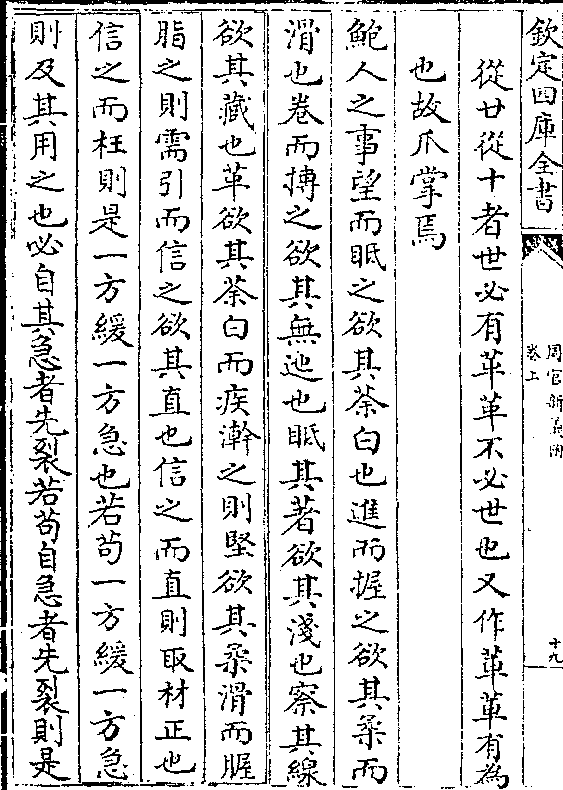 欽定四庫全書
周官新義附
卷上
十九
從廿從十者世必有革革不必世也又作革革有為
也故爪掌焉
鮑人之事望而眂之欲其荼白也進而握之欲其柔而
滑也卷而摶之欲其無迆也眂其著欲其淺也察其線
欲其藏也革欲其荼白而疾澣之則堅欲其柔滑而腥
脂之則需引而信之欲其直也信之而直則取材正也
信之而枉則是一方緩一方急也若苟一方緩一方急
則及其用之也必自其急者先裂若苟自急者先裂則是